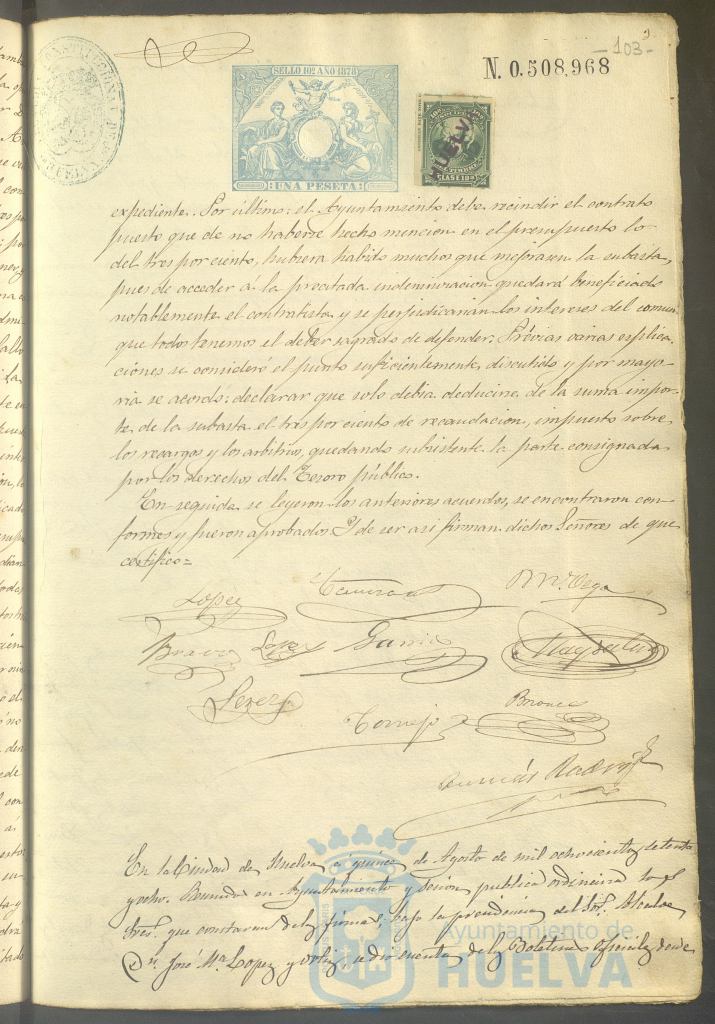 -103-
N. 0.508,968
SELLO 10º AÑO 1878
UNA PESETA
HUELVA
TIMBRE
CLASE 10ª
expediente. Por último: el Ayuntamiento debe recindir el contrato
puesto que de no haberse hecho mencion en el presupuesto lo
del tres por ciento, hubiera habido muchos que mejorasen la subasta,
pues de acceder á la precitada indemnizacion quedará beneficiado
notablemente el contratista y se perjudicarian los intereses del comun
que todos tenemos el deber sagrado de defender. Prévias varias esplica-
ciones se consideró el punto suficientemente discutido y por mayo-
ria se acordó: declarar que solo debia deducirse de la suma impor-
te de la subasta el tres por ciento de recaudacion, impuesto sobre
los recargos y los arbitrios, quedando subsistente la parte consignada
por los derechos del Tesoro público.
En seguida se leyeron los anteriores acuerdos, se encontraron con-
formes y fueron aprobados. Y de ser asi firman dichos Señores de que
certifico=
Lopez
Vega
Bravo Lopez Garcia
Perez
Tornejo
En la Ciudad de Huelva a quince de Agosto de mil ochocientos setenta
y ocho. Reunidos en Ayuntamiento y Sesion publica ordinaria los
Sres. que constaran de las firmas, bajo la presidencia del Sor. Alcalde
Dn. José Ma. Lopez y se dio cuenta de los Boletines oficiales desde
Ayuntamiento de
HUELVA